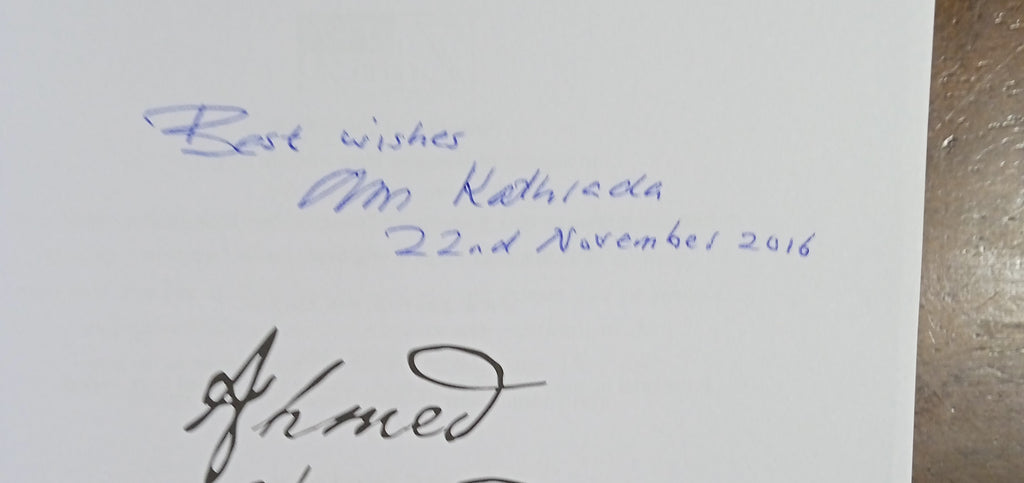 Best wishes
AM Kathrada
22nd November 2016
Ahmed